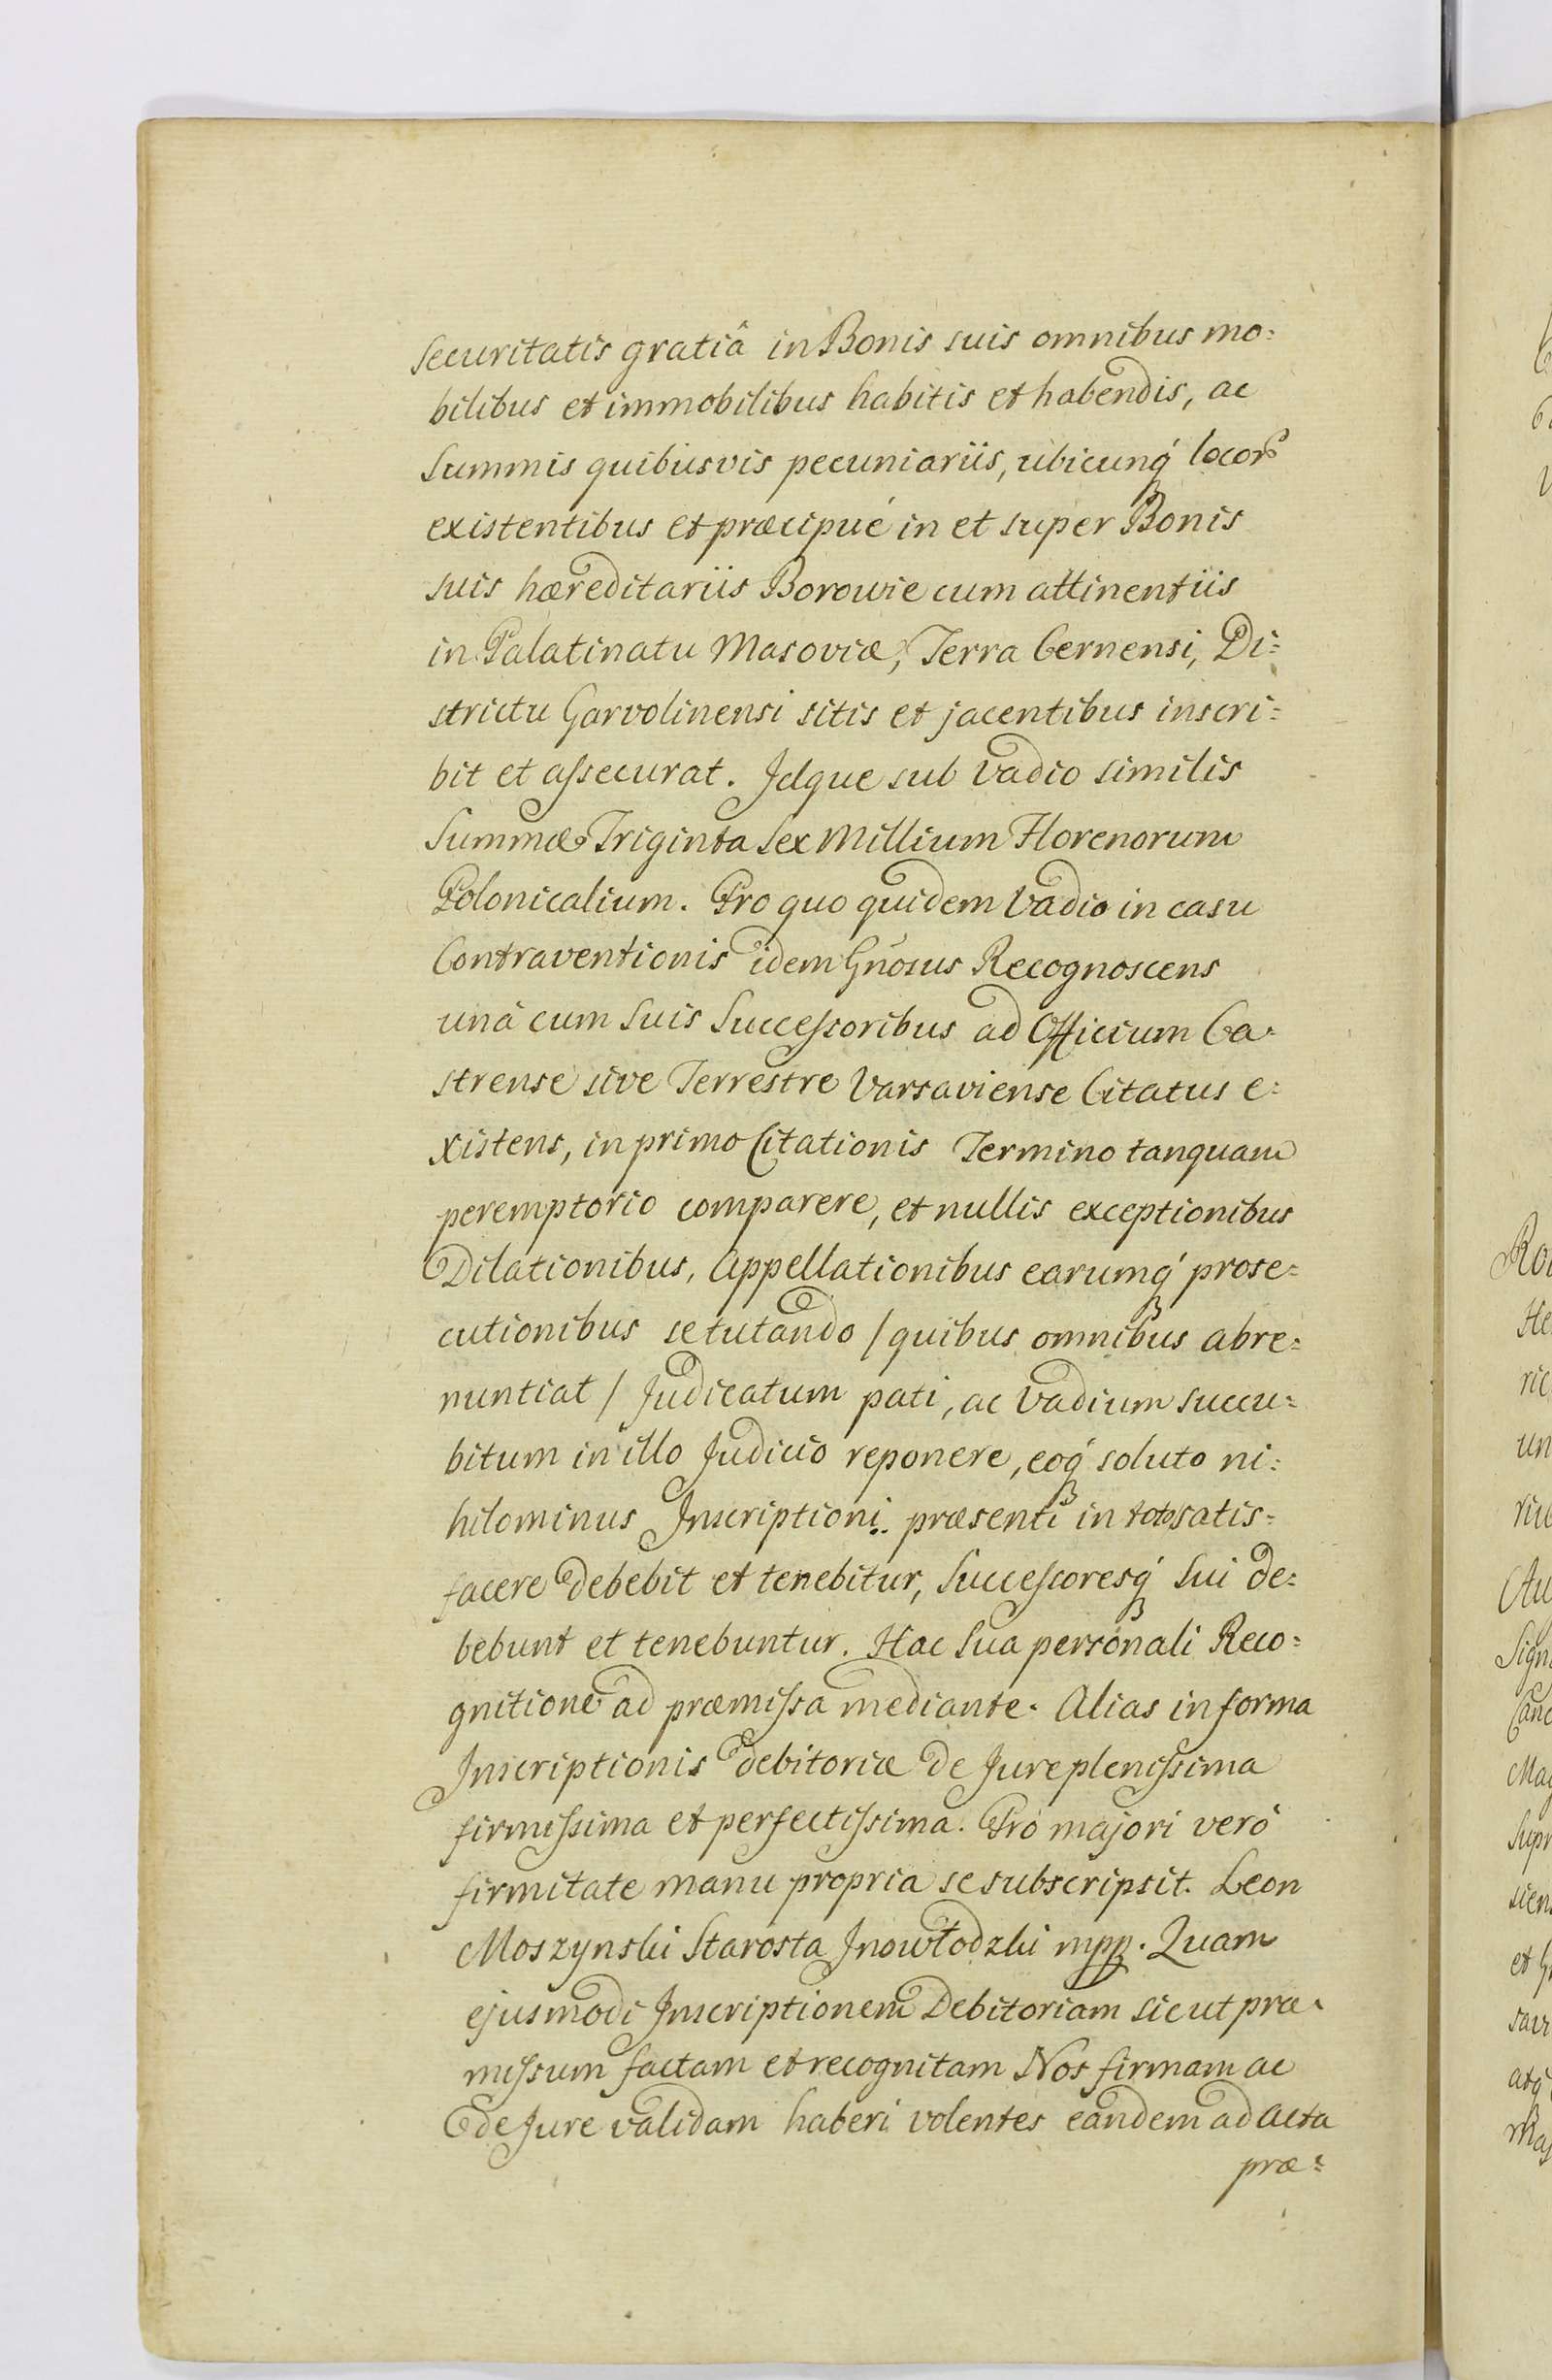 securitatis gratiâ in Bonis suis omnibus mo:
bilibus et immobilibus habitis et habendis, ac
Summis quibusvis pecuniariis, ubicunq́ locor
existentibus et præcipué in et super Bonis
suis hæreditariis Borowie cum attinentiis
in Palatinatu Masoviæ, Terra Cernensi, Di:
strictu Garvolinensi sitis et jacentibus inscri:
bit et assecurat. Idque sub Vadio similis
Summæ Triginta Sex Millium Florenorum
Polonicalium. Pro quo quidem Vadio in casu
Contraventionis idem Gnosus Recognoscens
unâ cum Suis Successoribus ad Officium Ca:
strense sive Terrestre Varsaviense Citatus e:
xistens, in primo Citationis Termino tanquam
peremptorio comparere, et nullis exceptionibus
Dilationibus, Appellationibus earumq́ prose:
cutionibus se tutando / quibus omnibus abre:
nuntiat / Judicatum pati, ac Vadium succu:
bitum in illo Judicio reponere, eoq́ soluto ni:
hilominus Inscriptioni præsenti in toto satis:
facere debebit et tenebitur, Successoresq́ Sui de:
bebunt et tenebuntur. Hac Sua personali Reco:
gnitione ad præmissa mediante. Alias in forma
Inscriptionis debitoriæ de Jure plenissima
firmissima et perfectissima. Pro majori verò
firmitate manu propria se subscripsit. Leon
Moszynski Starosta Inowłodzki mpp. Quam
ejusmodi Inscriptionem Debitoriam sicut præ:
missum factam et recognitam Nos firmam ac
de Jure validam haberi volentes eandem ad Acta
præ: